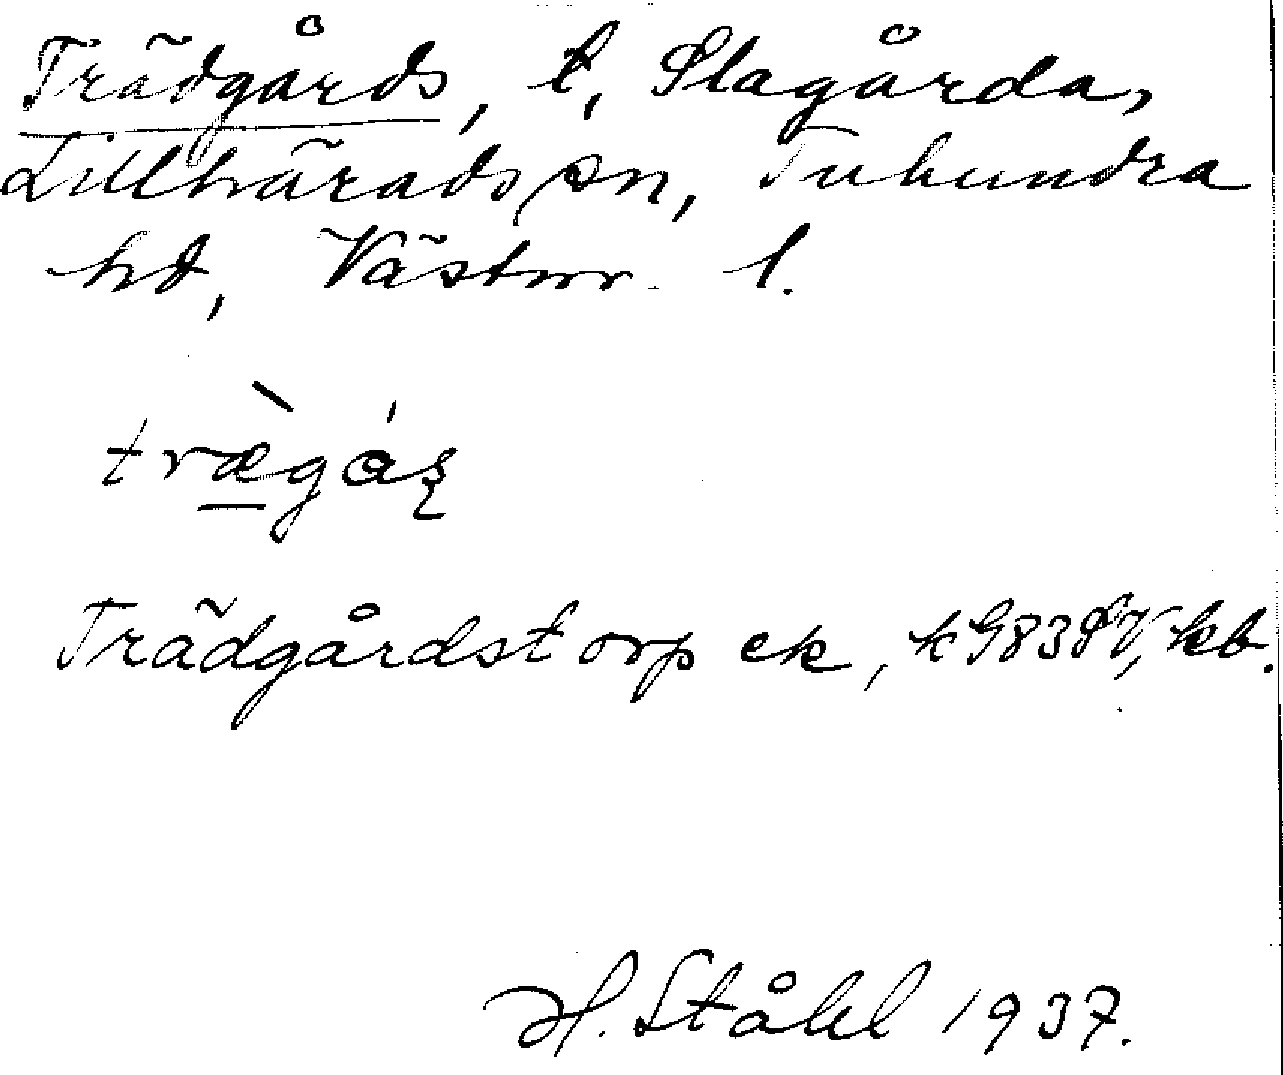 Trädgårds, t, Slagårda,
Lillhärads sn, Tuhundra
hd, Västm. l.
træ̀gás̨
Trädgårdstorp ek, k G83SV, kb.
H. Ståhl 1937.